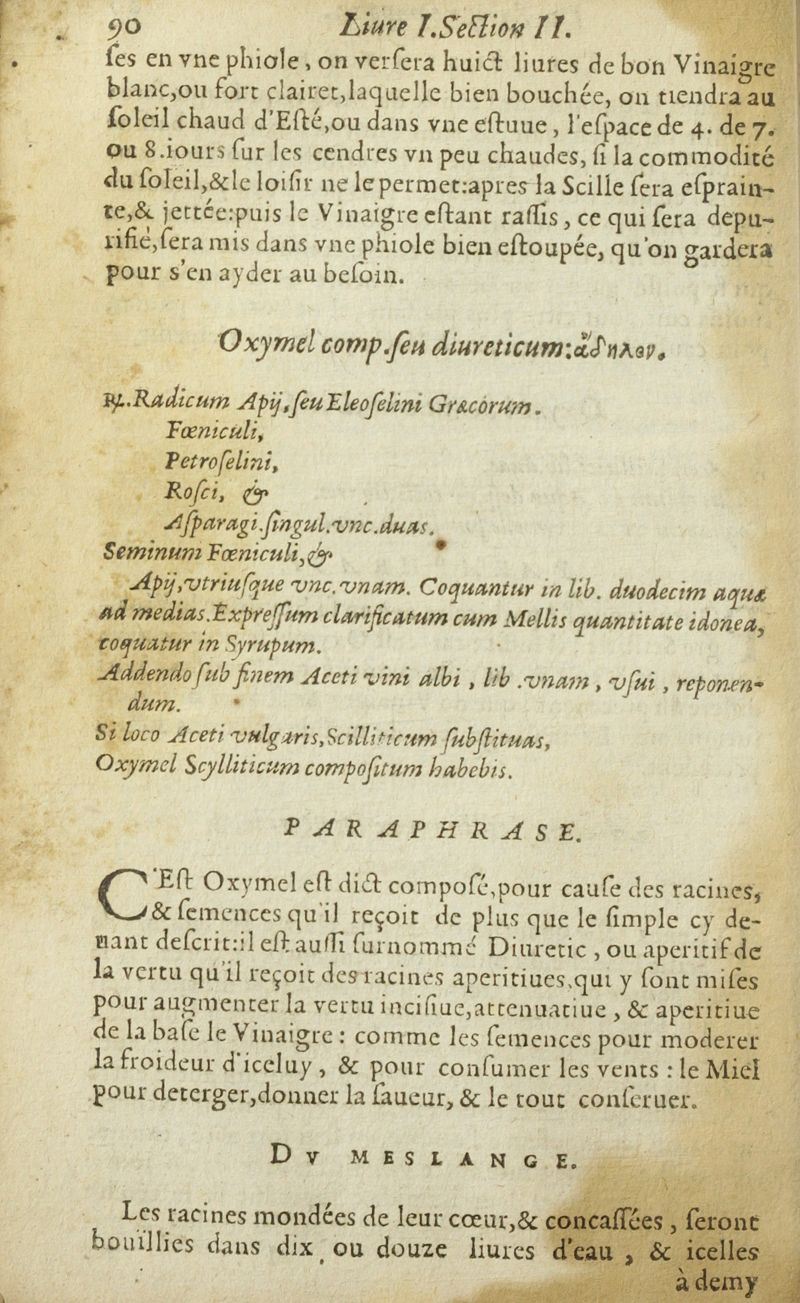 90 Liure I. Section II.
ses en vne phiole, on versera huict liures de bon Vinaigre
blanc,ou fort clairet,laquelle bien bouchée, on tiendra au
soleil chaud d'Esté,ou dans vne estuue, l'espace de 4. de 7.
ou 8.iours sur les cendres vn peu chaudes, si la commodité
du soleil,&le loisir ne le permet:apres la Scille sera esprain-
te,& jettée:puis le Vinaigre estant rassis, ce qui sera depu-
rifié,sera mis dans vne phiole bien estoupée, qu'on gardera
pour s'en ayder au besoin.
Oxymel comp.seu diureticum:ἄδηλον.
℞.Radicum Apij,seu Eleoselini Græcorum.
Fœniculi,
Petroselini,
Rosci, &
Asparagi.singul.vnc.duas.
Seminum Fœniculi,&
Apij,vtriusque vnc.vnam. Coquantur in lib. duodecim aquæ
ad medias.Expressum clarificatum cum Mellis quantitate idonea,
coquatur in Syrupum.
Addendo sub finem Aceti vini albi, lib.vnam, vsui, reponen-
dum.
Si loco Aceti vulgaris,Scilliticum substituas,
Oxymel Scylliticum compositum habebis.
PARAPHRASE.
C'Est Oxymel est dict composé,pour cause des racines,
& semences qu'il reçoit de plus que le simple cy de-
uant descrit:il est aussi surnommé Diuretic, ou aperitif de
la vertu qu'il reçoit des racines aperitiues,qui y sont mises
pour augmenter la vertu incisiue,attenuatiue, & aperitiue
de la base le Vinaigre: comme les semences pour moderer
la froideur d'iceluy, & pour consumer les vents: le Miel
pour deterger,donner la saueur, & le tout conseruer.
DV MESLANGE.
Les racines mondées de leur cœur,& concassées, seront
bouillies dans dix ou douze liures d'eau, & icelles
à demy